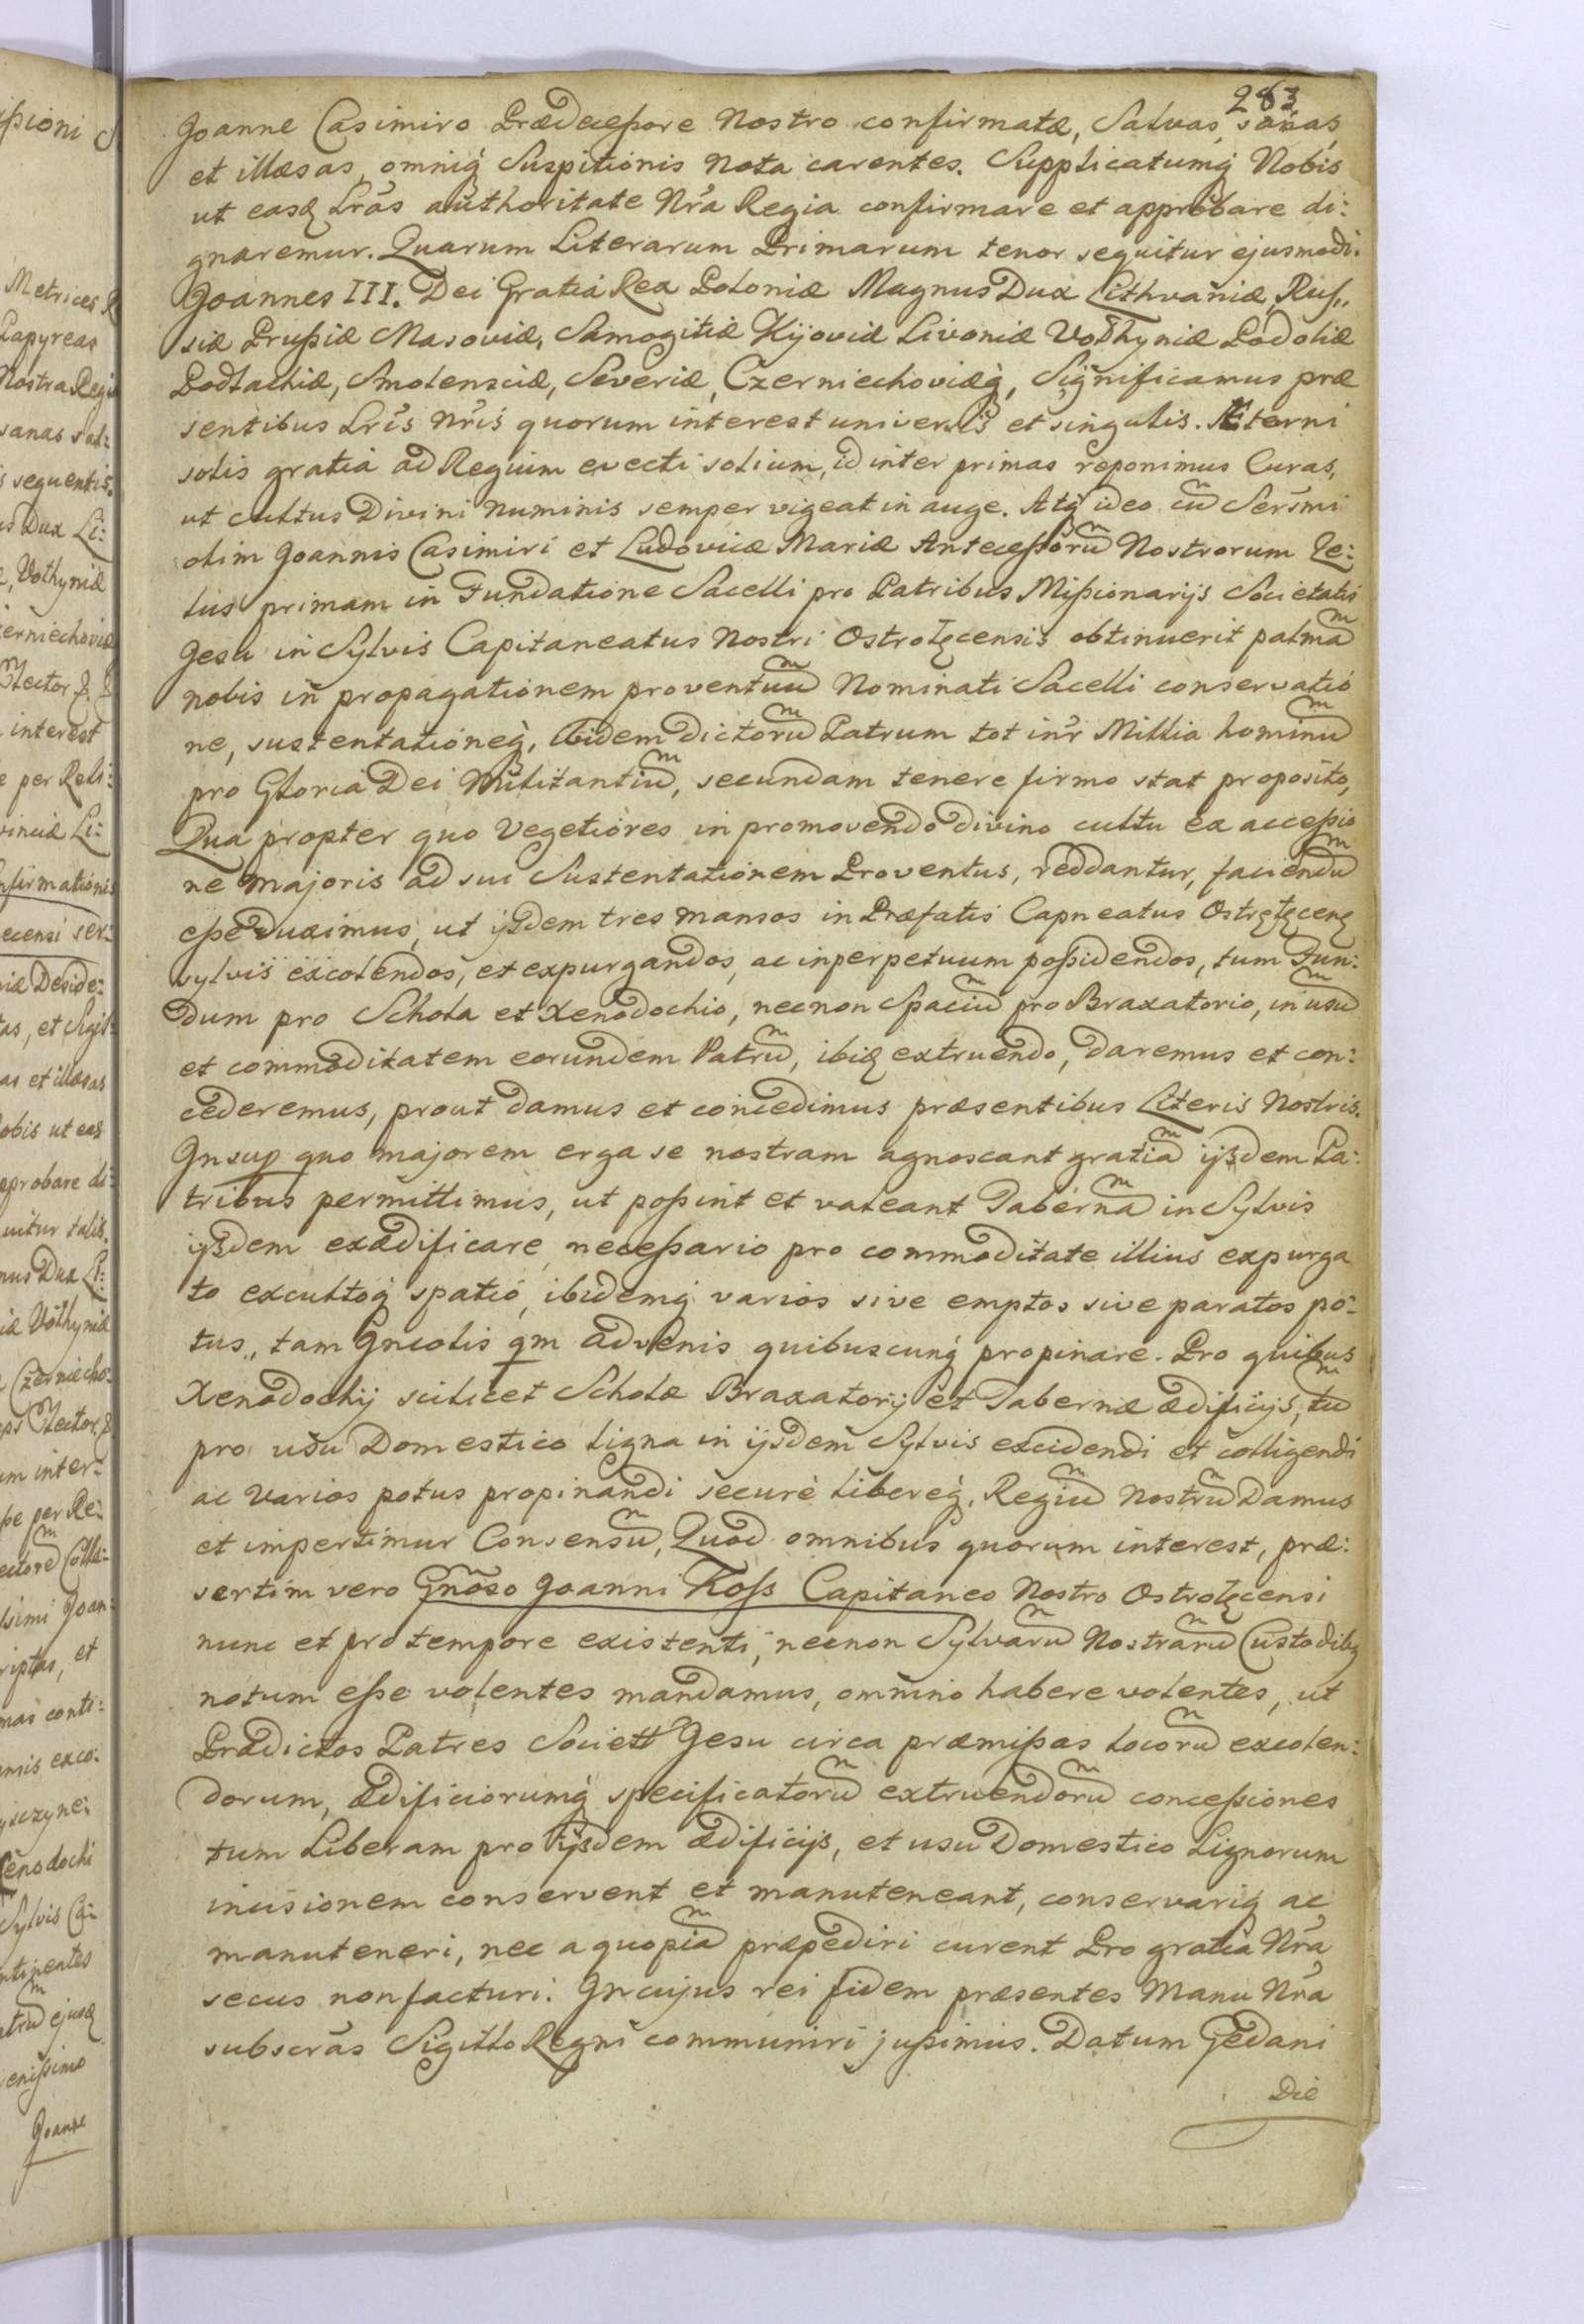 283
Joanne Casimiro Prædeceßore Nostro confirmatæ, Salvas, sanas,
et illæsas, omniq́ Suspitionis Nota carentes. Supplicatumq́ Nobis
ut easq Lrãs authoritate Nr̃a Regia confirmare et approbare di:
gnaremur. Quarum Literarum Primarum tenor sequitur ejusmodi.
Joannes III. Dei Gratia Rex Poloniæ Magnus Dux Lithvaniæ, Ruß„
siæ Prußiæ Masoviæ, Samogitiæ Kijoviæ Livoniæ Volhyniæ Podoliæ
Podlachiæ, Smolensciæ, Severiæ, Czerniechoviæq́, Significamus præ
sentibus Lrĩs Nrĩs quorum interest universis et singulis. Æterni
solis gratiâ ad Regium evecti solium, id inter primas reponimus Curas,
ut cultus Divini Numinis semper vigeat in auge. Atq́ ideo cũ Serẽmi
olim Joannis Casimiri et Ludovicæ Mariæ Anteceßorũ Nostrorum Ze:
lus primam in Fundatione Sacelli pro Patribus Mißionarijs Societatis
Jesu in Sylvis Capitaneatus Nostri Ostrołęcensis obtinuerit palmã
nobis in propagationem proventuũ Nominati Sacelli conservatio
ne, sustentationeq́, ibidem dictorũ Patrum tot inr̃ Millia hominũ
pro Gloria Dei Militantiũ, secundam tenere firmo stat proposito,
Qua propter quo Vegetiores in promovendo divino cultu ex acceßio
ne majoris ad sui Sustentationem Proventus, reddantur, faciendũ
eße duximus, ut ijsdem tres mansos in Præfatis Capneatus Ostrołęcenȩ
sylvis excolendos, et expurgandos, ac in perpetuum poßidendos, tum Fun:
dum pro Schola et Xenodochio, necnon Spaciũ pro Braxatorio, in usũ
et commoditatem eorundem Patrũ, ibiq extruendo, daremus et con:
cederemus, prout damus et concedimus præsentibus Literis Nostris.
Jnsup quo majorem erga se nostram agnoscant gratiã ijsdem Pa:
tribus permittimus, ut poßint et valeant Tabernã in Sylvis
ijsdem exædificare, neceßario pro commoditate illius expurga
to excultoq́ spatio, ibidemq́ varios sive emptos sive paratos po:
tus, tam Jncolis qm advenis quibuscunq́ propinare. Pro quibus
Xenodochij scilicet Scholæ Braxatorij et Tabernæ ædificijs, tũ
pro usu Domestico ligna in ijsdem Sylvis excidendi et colligendi
ac varios potus propinandi securè libereq́, Regiũ Nostrũ Damus
et impertimur Consensũ, Quod omnibus quorum interest, præ:
sertim vero Gnõso Joanni Koſs Capitaneo Nostro Ostrołęcensi
nunc et pro tempore existenti, necnon Sylvarũ Nostrarũ Custodibȝ
notum eße volentes mandamus, omnino habere volentes, ut
Prædictos Patres Societt Jesu circa præmißas locorũ excolen:
dorum, ædificiorumq́ specificatorũ extruendorũ conceßiones
tum Liberam pro ijsdem ædificijs, et usu Domestico Lignorum
incisionem conservent et manuteneant, conservariq ac
manuteneri, nec a quopiã præpediri curent Pro gratia Nr̃a
secus non facturi. Jn cujus rei fidem præsentes Manu Nr̃a
subscrãs Sigillo Regni communiri jußimus. Datum Gedani
Die